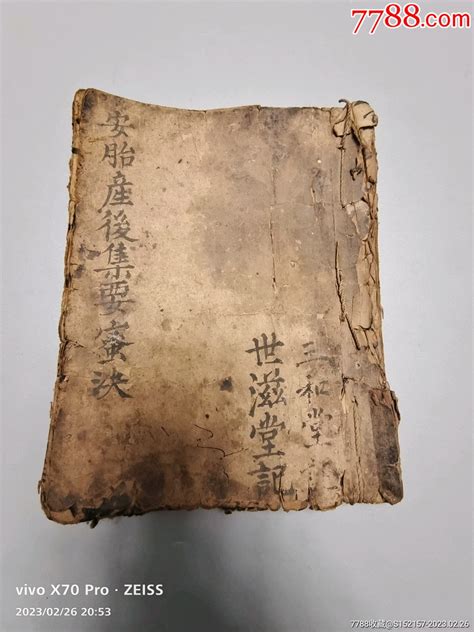 7788.com
安胎産後集要蜜決
世滋堂記
三和堂記
vivo X70 Pro · ZEISS
2023/02/26 20:53
7788收藏@S152157-2023.02.26